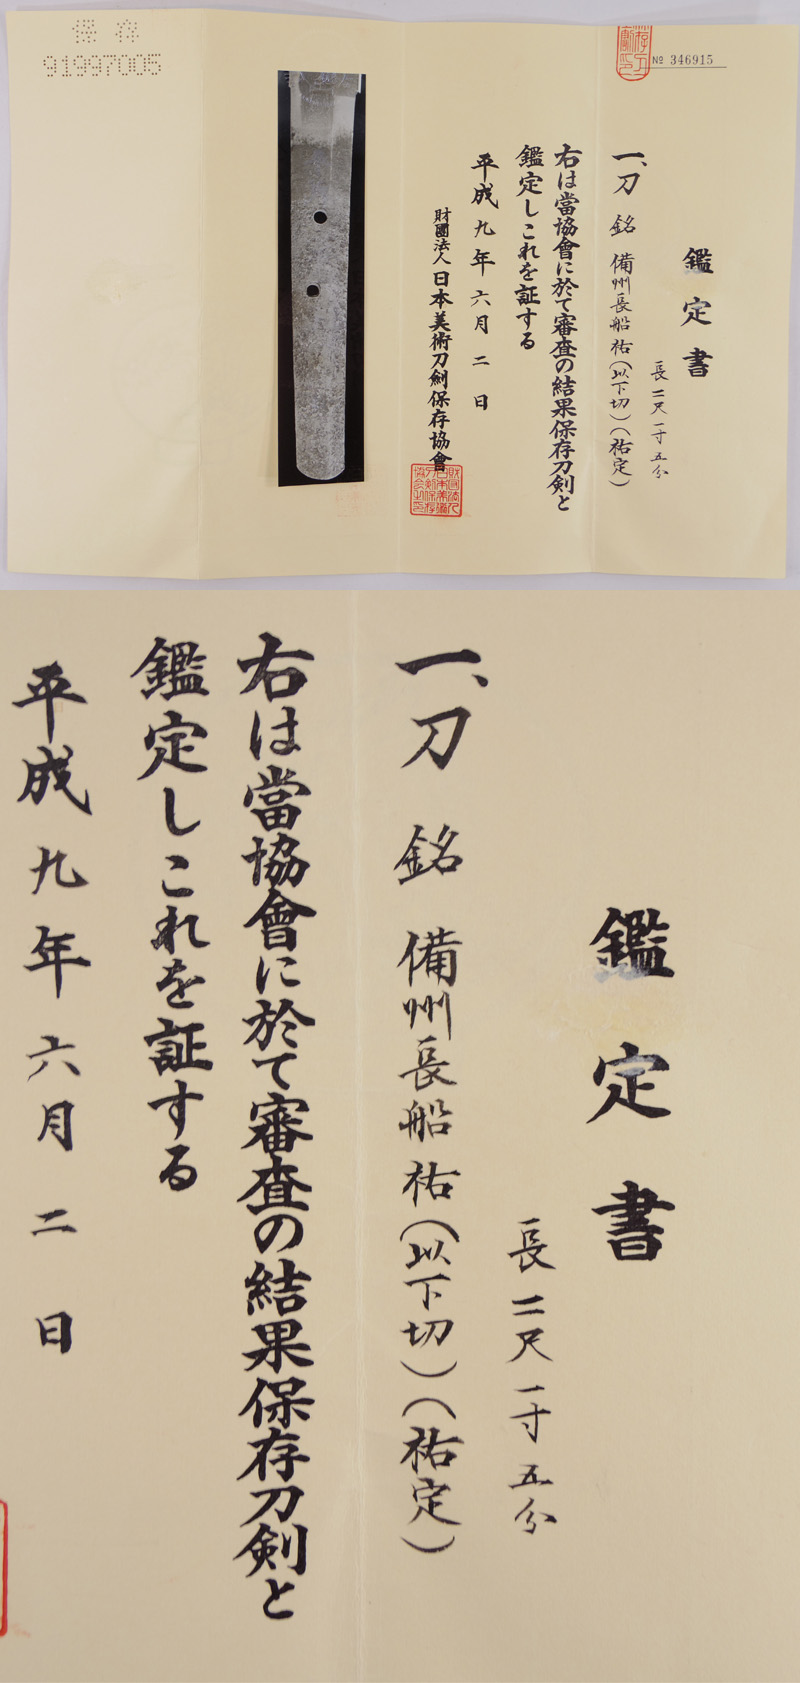 保存
91997005
№ 346915
鑑定書
長二尺一寸五分
一、刀 銘 備州長船祐(以下切)(祐定)
右は當協會に於て審査の結果保存刀剣と
鑑定しこれを証する
平成九年六月二日
財團法人 日本美術刀剣保存協會
鑑定書
長二尺一寸五分
一、刀 銘 備州長船祐(以下切)(祐定)
右は當協會に於て審査の結果保存刀剣と
鑑定しこれを証する
平成九年六月二日